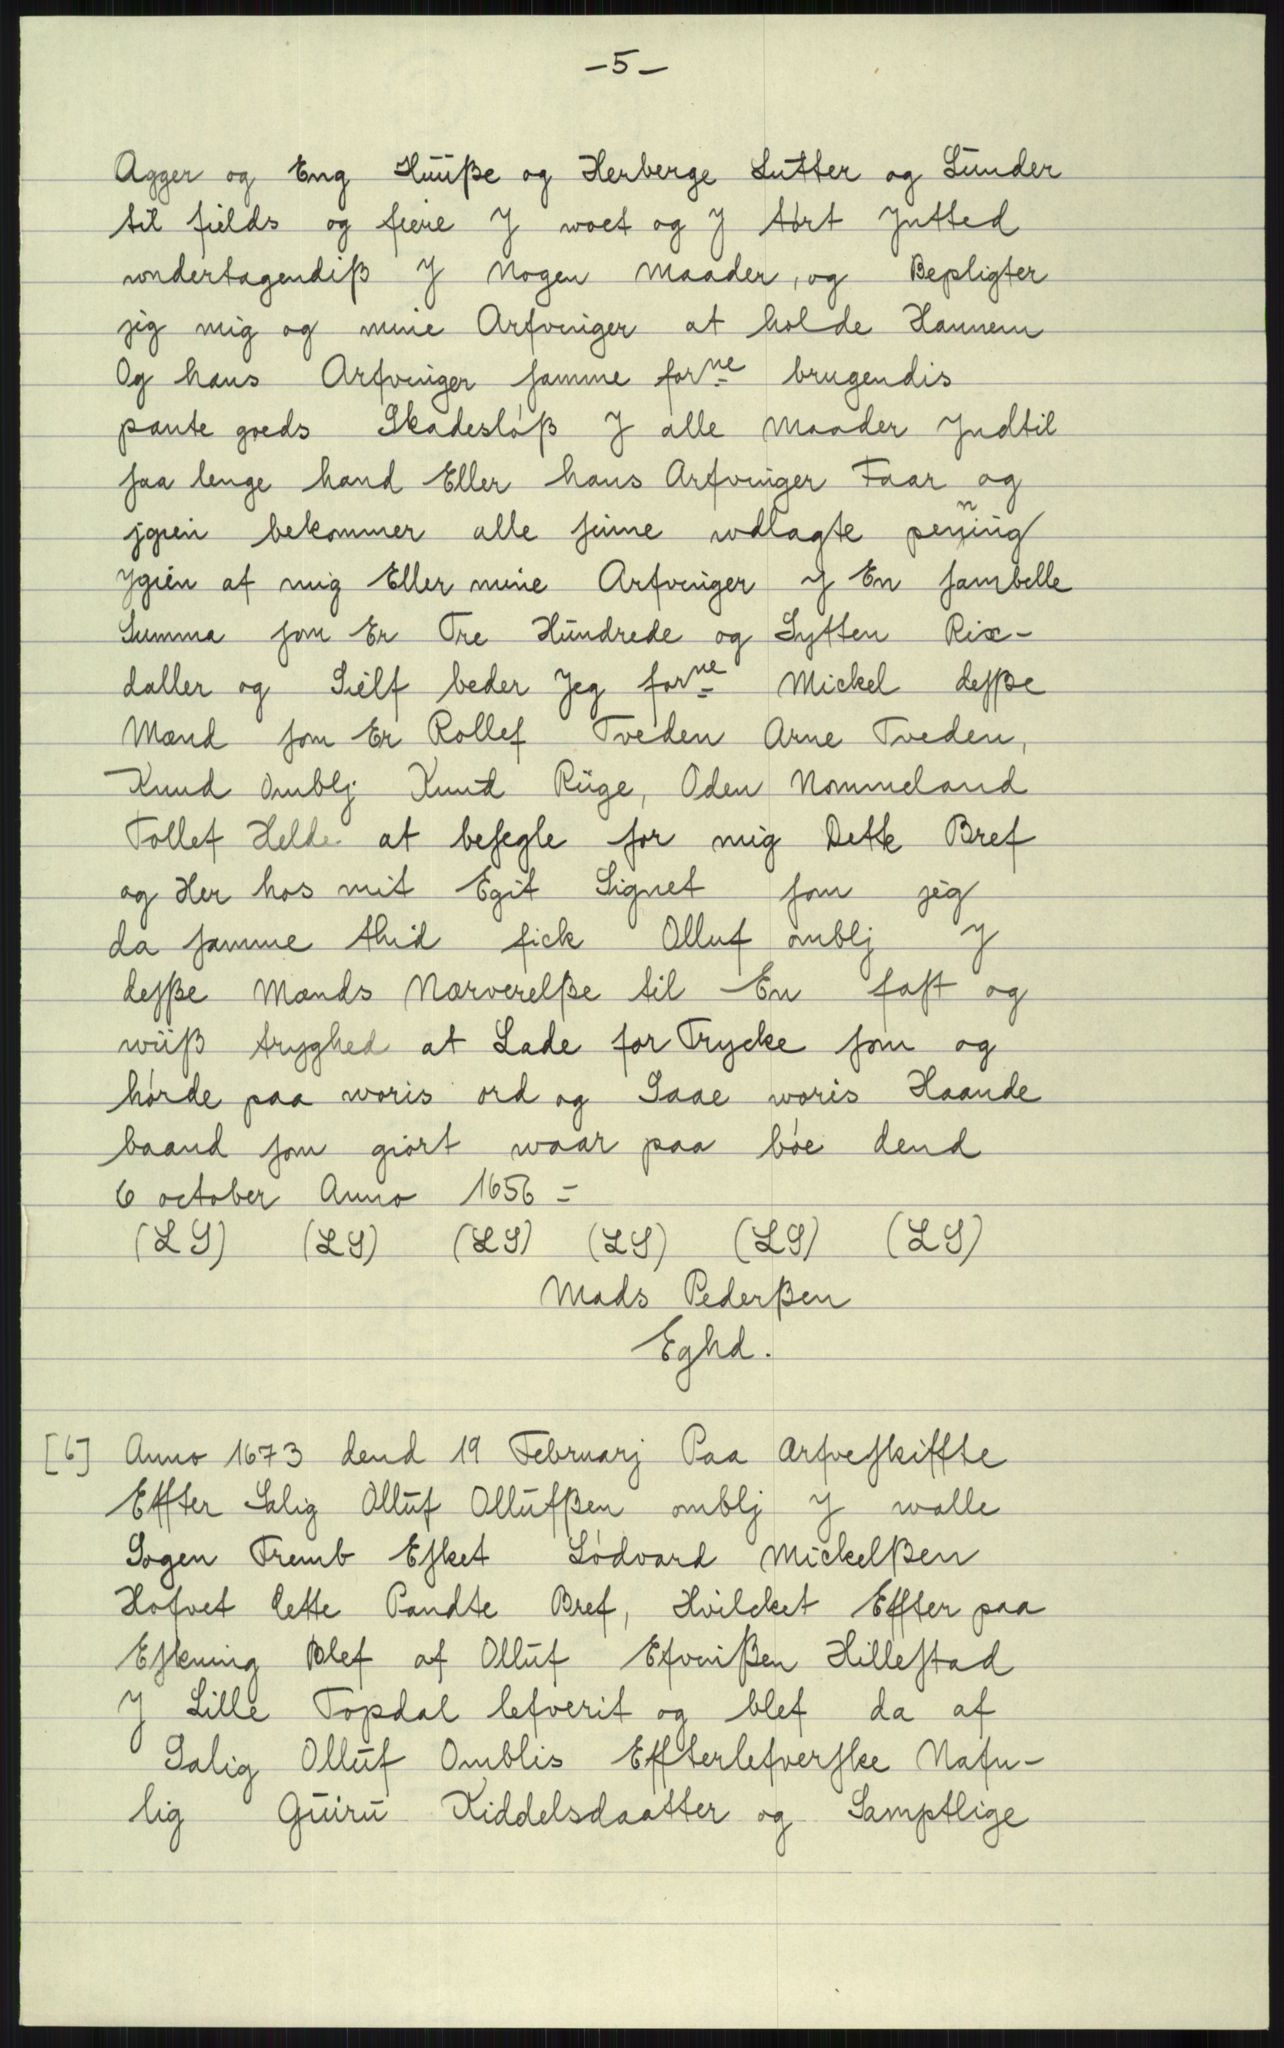 -5-
Agger og Eng Huuße og Herberge Lutter og Lunder
til fields og fiere J woet og J tørt Jntted
wndertagendiß J Nogen Maader, og Bepligter
jeg mig og mine Arfvinger at holde Hannem
Og hans Arfvinger samme forne brugendis
pante goeds Skadesløß J alle Maader Jndtil
saa lenge hand Eller hans Arfvinger Faar og
jgien bekommer alle sinne wdlagte penning
Ygien af mig Eller mine Arfvinger J En sambelle
Summa som Er Tre Hundrede og Sytten Rix-
daller og Sielf beder Jeg forne Mickel desße
Mænd som Er Rollef Tveden Arne Tveden,
Knud Omblj Knud Rüge, Oden Nommeland
Tollef Helde at besegle for mig Dette Bref
og Her hos mit Egit Signet som jeg
da samme thid fick Olluf omblj J
desße Mænds Nærverelße til En fast og
wiiß tryghed at Lade for Trycke som og
hørde paa woris ord og Saae woris Haande
baand som giort waar paa bøe dend
6 october Anno 1656 =
(LS) (LS) (LS) (LS) (LS) (LS)
Mads Pederßen
Eghd.
[6] Anno 1673 dend 19 Februarj Paa Arfveskiffte
Effter Salig Olluf Ollufßen omblj J walle
Sogen Fremb Esket Lødvard Mickelßen
Hofvet dette Pandte Bref, Hvilcket Effter paa
Eskning Blef af Olluf Efvinßen Hillestad
J Lille Topdal lefverit og blef da af
Salig Olluf Omblis Effterlefverske Nafn-
lig Guiru Kiddelsdaatter og Samptlige